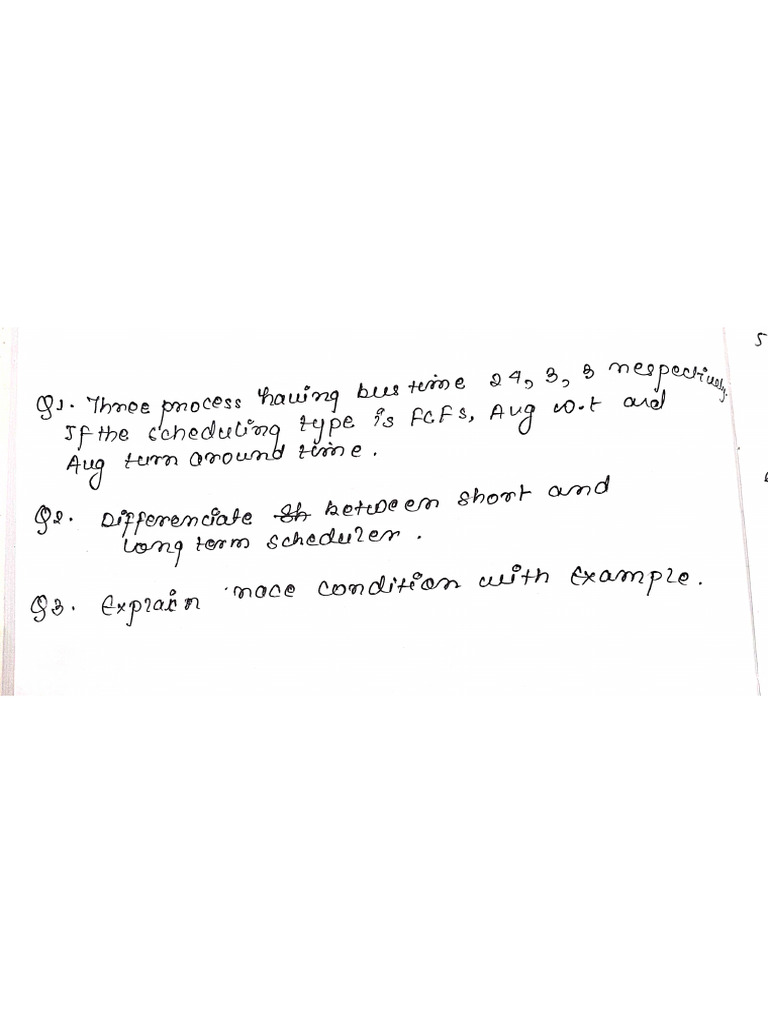 Q1. Three process having bus time 24, 3, 3 respectively.
If the scheduling type is FCFS, Avg w.t and
Avg turn around time.
Q2. Differenciate between short and
long term scheduler.
Q3. Explain race condition with Example.
5